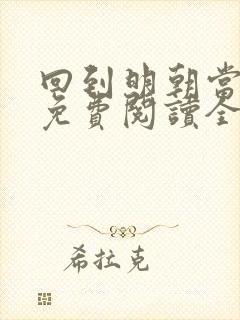 回到明朝當
免費閱讀全
希拉克